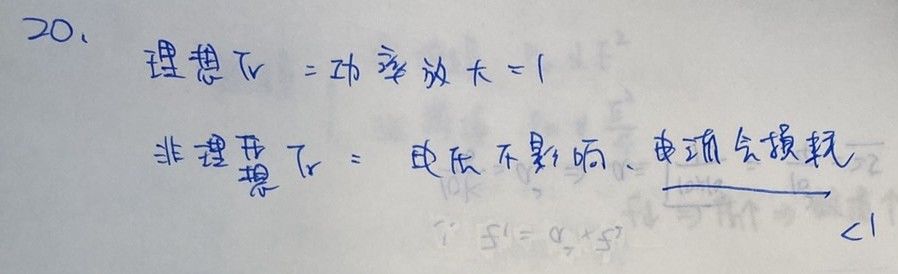 20.
理想Tr = 功率放大 = 1
非理想Tr = 电压不影响、电流会损耗
<1